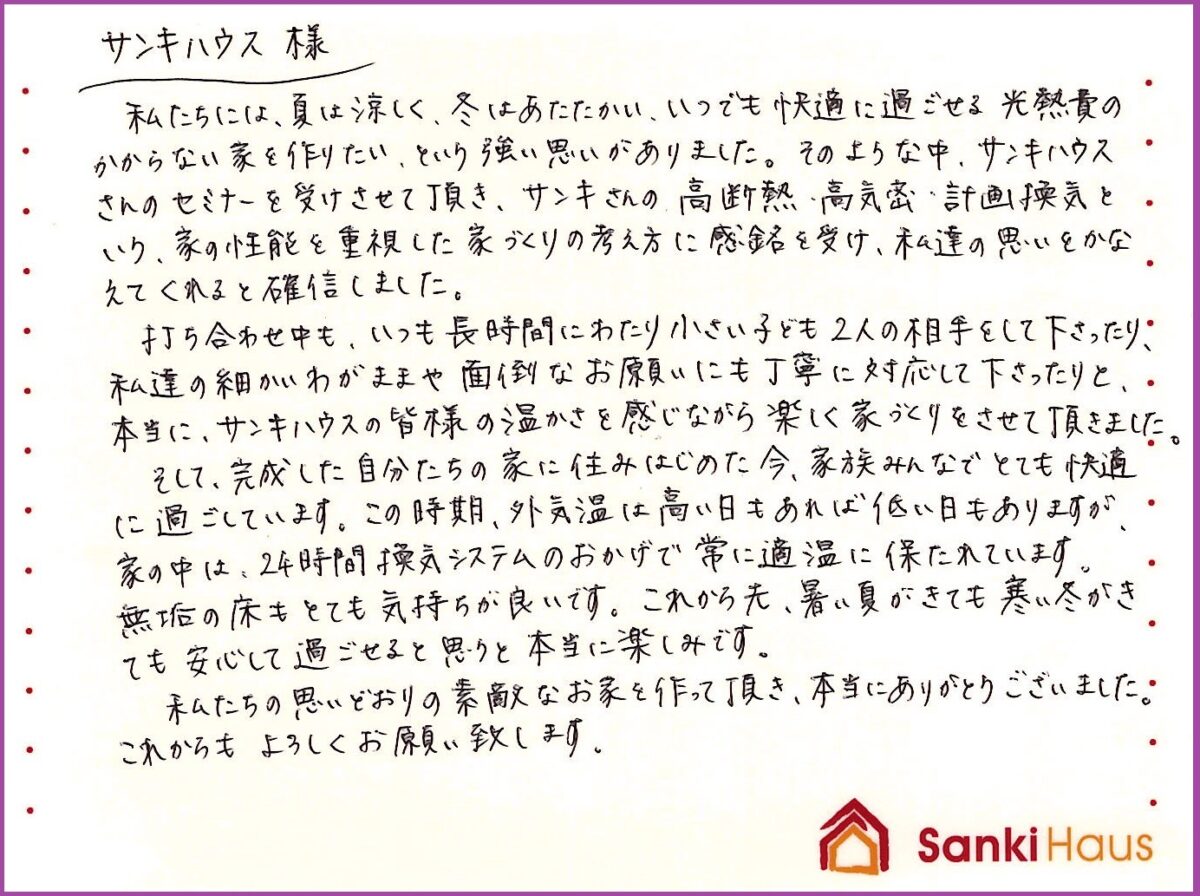 サンキハウス 様
私たちには、夏は涼しく、冬はあたたかい、いつでも快適に過ごせる光熱費の
かからない家を作りたい、という強い思いがありました。そのような中、サンキハウス
さんのセミナーを受けさせて頂き、サンキさんの高断熱・高気密・計画換気と
いう、家の性能を重視した家づくりの考え方に感銘を受け、私達の思いをかな
えてくれると確信しました。
打ち合わせ中も、いつも長時間にわたり小さい子ども2人の相手をして下さったり、
私達の細かいわがままや面倒なお願いにも丁寧に対応して下さったりと、
本当に、サンキハウスの皆様の温かさを感じながら楽しく家づくりをさせて頂きました。
そして、完成した自分たちの家に住みはじめた今、家族みんなでとても快適
に過ごしています。この時期、外気温は高い日もあれば低い日もありますが、
家の中は、24時間換気システムのおかげで常に適温に保たれています。
無垢の床もとても気持ちが良いです。これから先、暑い夏がきても寒い冬がき
ても安心して過ごせると思うと本当に楽しみです。
私たちの思いどおりの素敵なお家を作って頂き、本当にありがとうございました。
これからもよろしくお願い致します。
Sanki Haus